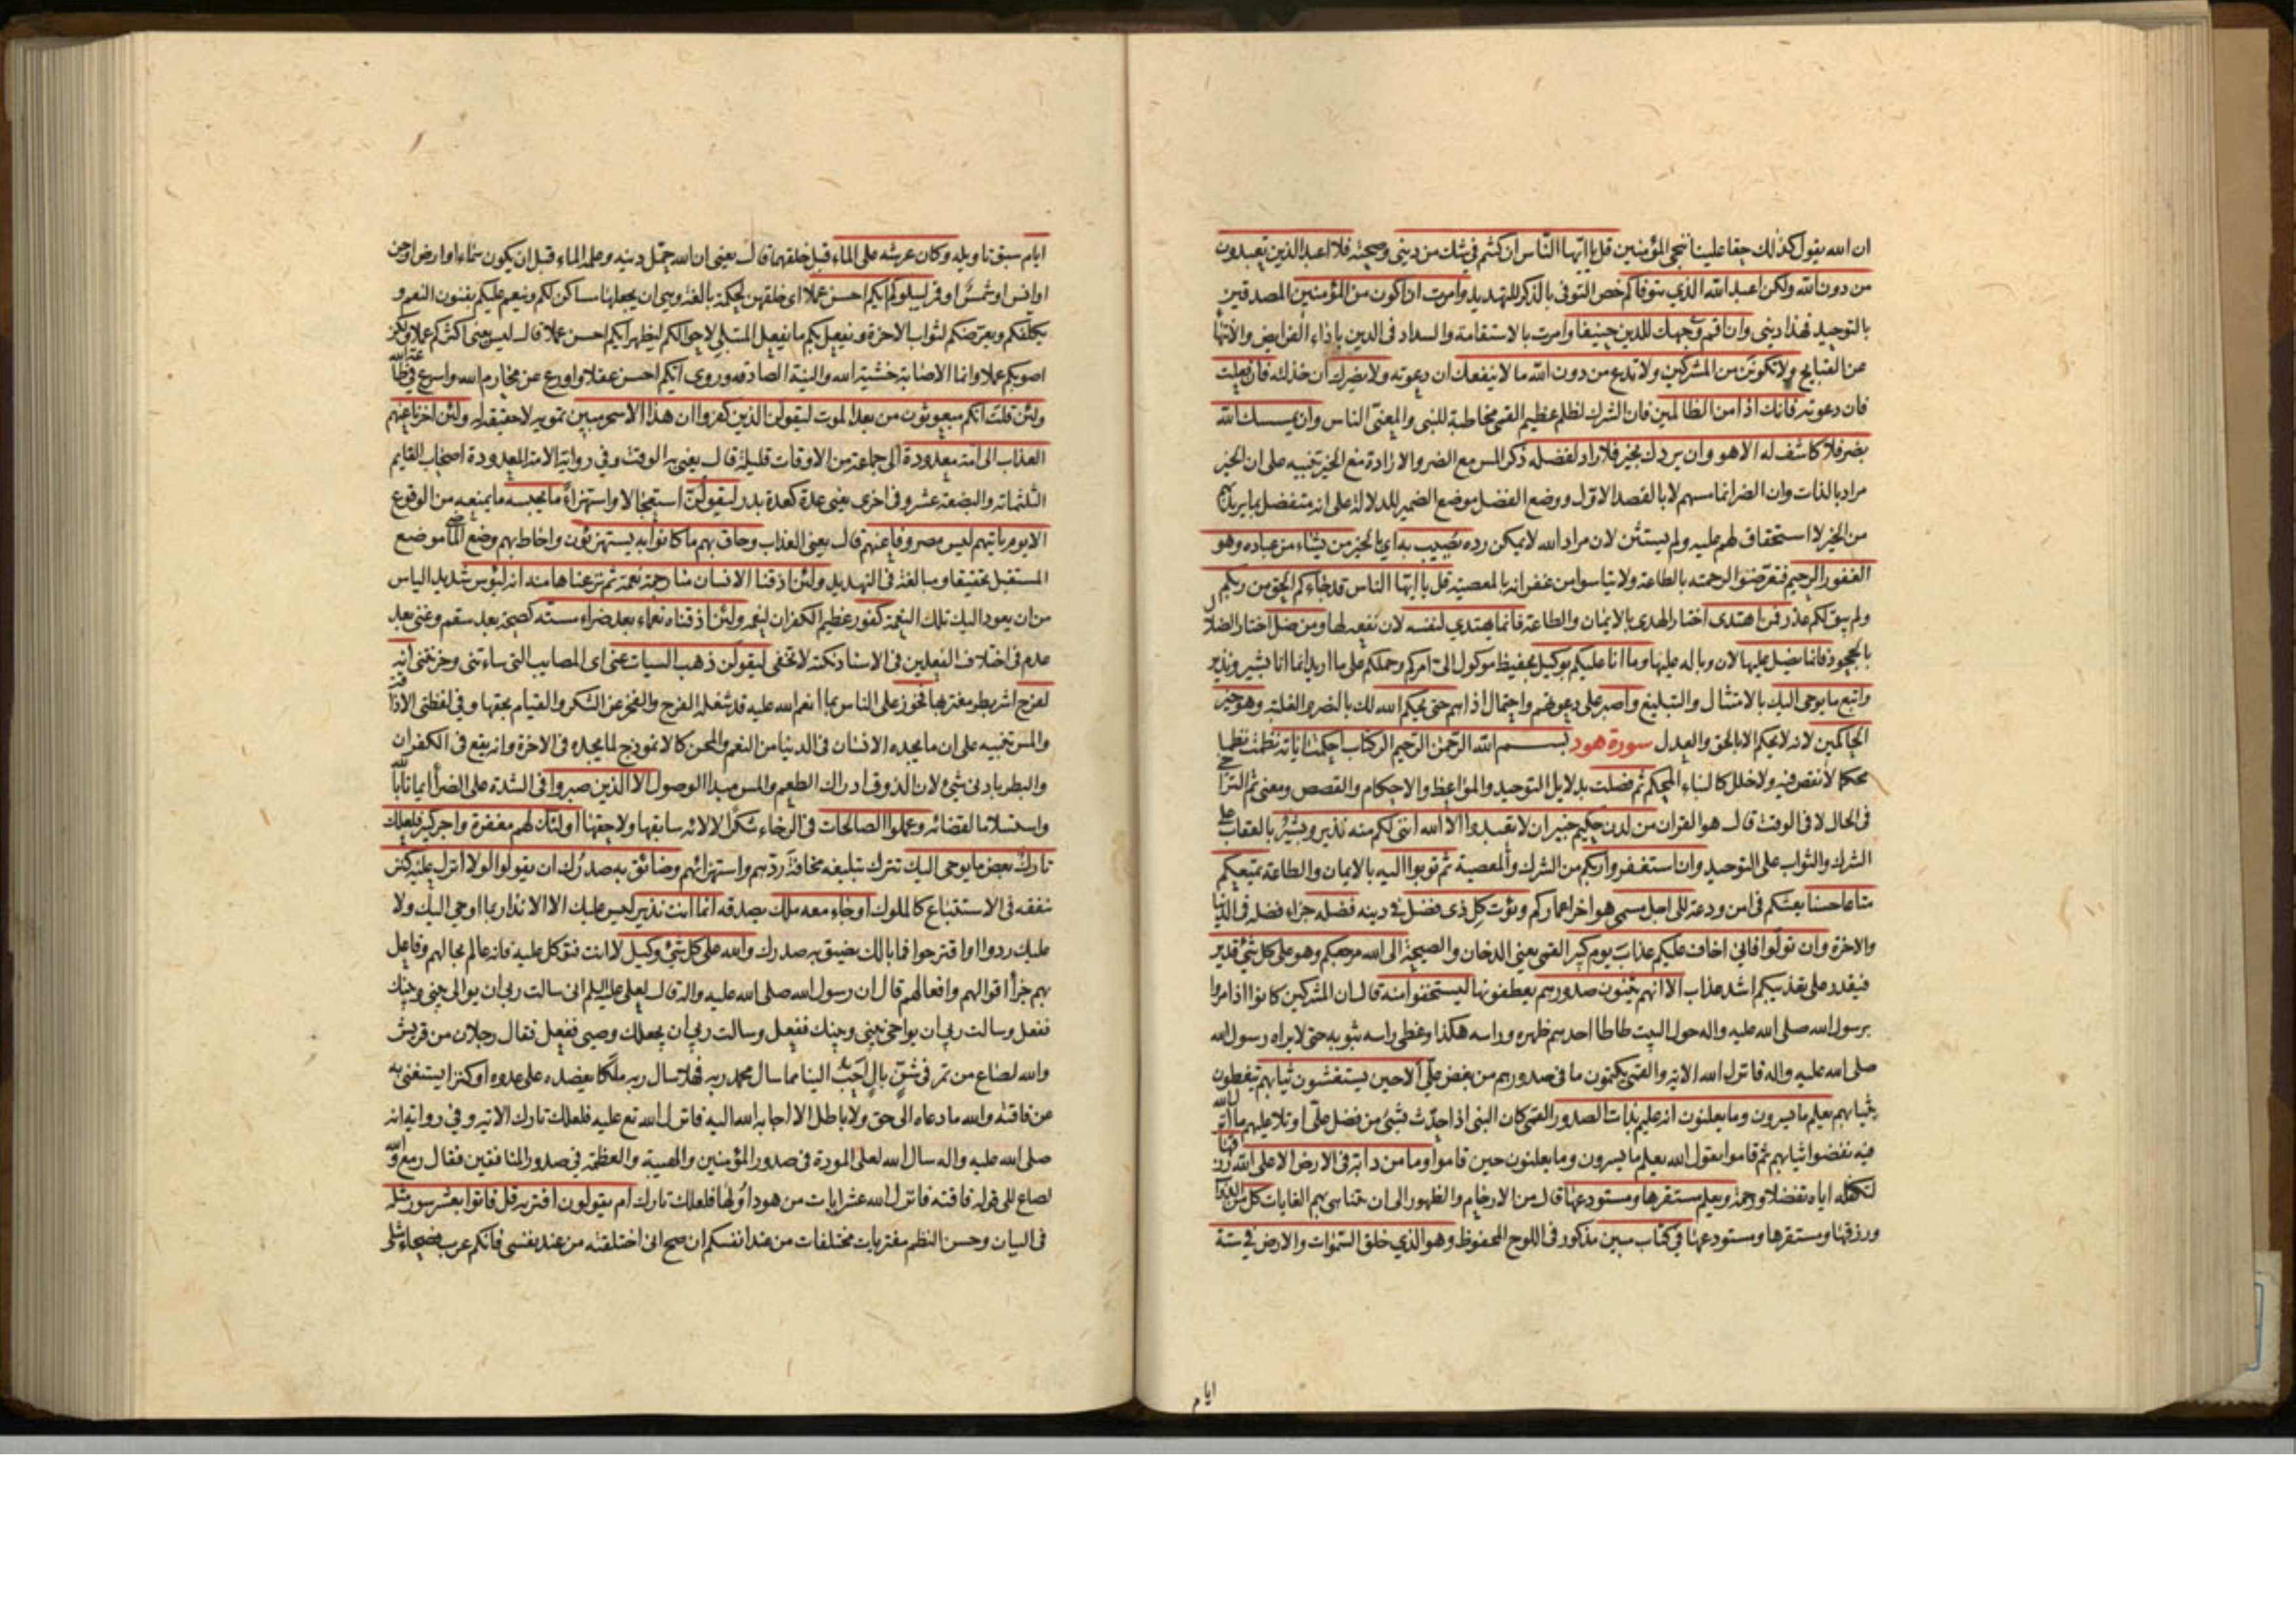 ان الله يقول كذلك حقا علينا ننجي المؤمنين قل يا ايها الناس ان كنتم في شك من ديني وصحته فلا اعبد الذين تعبدون
من دون الله ولكن اعبد الله الذي يتوفاكم خص التوفي بالذكر للتهديد وامرت ان اكون من المؤمنين المصدقين
بالتوحيد فهذا ديني وان اقم وجهك للدين حنيفا وامرت بالاستقامة والسداد في الدين باداء الفرايض والانتهاء
عن القبايح ولا تكونن من المشركين ولا تدع من دون الله ما لا ينفعك ان دعوته ولا يضرك ان خذلته فان فعلت
فان دعوته فانك اذا من الظالمين فان الشرك لظلم عظيم القمي مخاطبة للنبي والمعني الناس وان يمسسك الله
بضر فلا كاشف له الا هو وان يردك بخير فلا راد لفضله ذكر المس مع الضر والارادة مع الخير تنبيه على ان الخير
مراد بالذات وان الضر انما مسهم لا بالقصد الاول ووضع الفضل موضع الضمير للدلالة على انه متفضل بما يريد بهم
من الخير لا استحقاق لهم عليه ولم يستثن لان مراد الله لا يمكن رده يصيب به اي بالخير من يشاء من عباده وهو
الغفور الرحيم فتعرضوا لرحمته بالطاعة ولا يتاسوا من غفرانه بالمعصية قل يا ايها الناس قد جاءكم الحق من ربكم
ولم يبق لكم عذر فمن اهتدى اختار الهدى بالايمان والطاعة فانما يهتدي لنفسه لان نفعه لها ومن ضل اختار الضلال
بالجحود فانما يضل عليها لان وباله عليها وما انا عليكم بوكيل بحفيظ موكول الي امركم وحملكم على ما اريد انما انا بشير ونذير
واتبع ما يوحى اليك بالامتثال والتبليغ واصبر على دعوتهم واحتمال اذاهم حتى يحكم الله لك بالنصر والغلبة وهو خير
الحاكمين لانه لا يحكم الا بالحق والعدل سورة هود بسم الله الرحمن الرحيم الر كتاب احكمت اياته نظمت نظما
محكما لا نقص فيه ولا خلل كالبناء المحكم ثم فصلت بدلايل التوحيد والمواعظ والاحكام والقصص ومعنى ثم التراخي
في الحال لا في الوقت قال هو القران من لدن حكيم خبير ان لا تعبدوا الا الله انني لكم منه نذير وبشير بالعقاب على
الشرك والثواب على التوحيد وان استغفروا ربكم من الشرك والمعصية ثم توبوا اليه بالايمان والطاعة يمتعكم
متاعا حسنا يعشكم في امن ودعة الى اجل مسمى هو اخر اعماركم ويؤت كل ذي فضل في دينه فضله جزاء فضله في الدنيا
والاخرة وان تولوا فاني اخاف عليكم عذاب يوم كبير القمي يعني الدخان والصيحة الى الله مرجعكم وهو على كل شيء قدير
فيقدر على تعذيبكم اشد عذاب الا انهم يثنون صدورهم يعطفونها ليستخفوا منه قال ان المشركين كانوا اذا مروا
برسول الله صلى الله عليه واله حول البيت طاطا احدهم ظهره وراسه هكذا وغطى راسه بثوبه حتى لا يراه رسول الله
صلى الله عليه واله فانزل الله الاية والقمي يكتمون ما في صدورهم من بغض علي الا حين يستغشون ثيابهم يتغطون
بثيابهم يعلم ما يسرون وما يعلنون انه عليم بذات الصدور القمي كان النبي اذا حدث بشيء من فضل علي او تلا عليهم ما انزل الله
فيه نفضوا ثيابهم ثم قاموا يقول الله يعلم ما يسرون وما يعلنون حين قاموا وما من دابة في الارض الا على الله رزقها
لتكفله اياه تفضلا ورحمة ويعلم مستقرها ومستودعها قال من الارحام والظهور الى ان تتناهى بهم الغايات كل من الدواب
ورزقها ومستقرها ومستودعها في كتاب مبين مذكور في اللوح المحفوظ وهو الذي خلق السموات والارض في ستة
ايام
ايام سبق تاويله وكان عرشه على الماء قبل خلقهما قال يعني ان الله حمل دينه وعلمه الماء قبل ان يكون سماء او ارض او جن
او انس او شمس او قمر ليبلوكم ايكم احسن عملا اي خلقهن لحكمة بالغة وهي ان يجعلها مساكن لكم وينعم عليكم بفنون النعم و
يكلفكم ويعرضكم لثواب الاخرة ويفعل بكم ما يفعل المبتلي لاحوالكم ليظهر ايكم احسن عملا قال ليس يعني اكثركم عملا ولكن
اصوبكم عملا وانما الاصابة خشية الله والنية الصادقة وروي ايكم احسن عقلا واورع عن محارم الله واسرع في طاعة الله
ولئن قلت انكم مبعوثون من بعد الموت ليقولن الذين كفروا ان هذا الا سحر مبين تمويه لا حقيقة له ولئن اخرنا عنهم
العذاب الى امة معدودة الى جماعة من الاوقات قليلة قال يعني به الوقت وفي رواية الامة المعدودة اصحاب القايم
الثلثمائة والبضعة عشر وفي اخرى يعني عدة كعدة بدر ليقولن استعجالا واستهزاء ما يحبسه ما يمنعه من الوقوع
الا يوم ياتيهم ليس مصروفا عنهم قال يعني العذاب وحاق بهم ما كانوا به يستهزؤن واحاط بهم وضع الماضي موضع
المستقبل تحقيقا ومبالغة في التهديد ولئن اذقنا الانسان منا رحمة نعمة ثم نزعناها منه انه ليؤس شديد الياس
من ان يعود اليك تلك النعمة كفور عظيم الكفران لنعمه ولئن اذقناه نعماء بعد ضراء مسته كصحة بعد سقم وغنى بعد
عدم في اختلاف الفعلين في الاسناد نكتة لا تخفى ليقولن ذهب السيات عني اي المصايب التي ساءتني وحزنتني انه
لفرح اشر بطر مغتر بها فخور على الناس بما انعم الله عليه قد شغله الفرح والفخر عن الشكر والقيام بحقها وفي لفظتي الاذاقة
والمس تنبيه على ان ما يجده الانسان في الدنيا من النعم والمحن كالانموذج لما يجده في الاخرة وانه يقع في الكفران
والبطر بادنى شيء لان الذوق ادراك الطعم والمس مبدا الوصول الا الذين صبروا في الشدة على الضراء ايمانا بالله
واستسلاما لقضائه وعملوا الصالحات في الرخاء شكرا لالائه سابقها ولاحقها اولئك لهم مغفرة واجر كبير فلعلك
تارك بعض ما يوحى اليك تترك تبليغه مخافة ردهم واستهزائهم وضائق به صدرك ان يقولوا لولا انزل عليه كنز
ننفقه في الاستتباع كالملوك او جاء معه ملك يصدقه انما انت نذير ليس عليك الا الانذار بما اوحي اليك ولا
عليك ردوا او اقترحوا فما بالك يضيق به صدرك والله على كل شيء وكيل لا انت فتوكل عليه فانه عالم بحالهم وفاعل
بهم جزاء اقوالهم وافعالهم قال ان رسول الله صلى الله عليه واله قال لعلي عليه السلم اني سالت ربي ان يوالي بيني وبينك
ففعل وسالت ربي ان يواخي بيني وبينك ففعل وسالت ربي ان يجعلك وصيي ففعل فقال رجلان من قريش
والله لصاع من تمر في شن بال احب الينا مما سال محمد ربه فهلا سال ربه ملكا يعضده على عدوه او كنزا يستغني به
عن فاقته والله ما دعاه الى حق ولا باطل الا اجابه الله اليه فانزل الله تع عليه فلعلك تارك الاية وفي رواية انه
صلى الله عليه واله سال الله لعلي المودة في صدور المؤمنين والهيبة والعظمة في صدور المنافقين فقال رمع والله
لصاع الى قوله فاقته فانزل الله عشر ايات من هود اولها فلعلك تارك ام يقولون افتريه قل فاتوا بعشر سور مثله
في البيان وحسن النظم مفتريات مختلفات من عند انفسكم ان صح اني اختلقته من عند نفسي فانكم عرب فصحاء مثلي